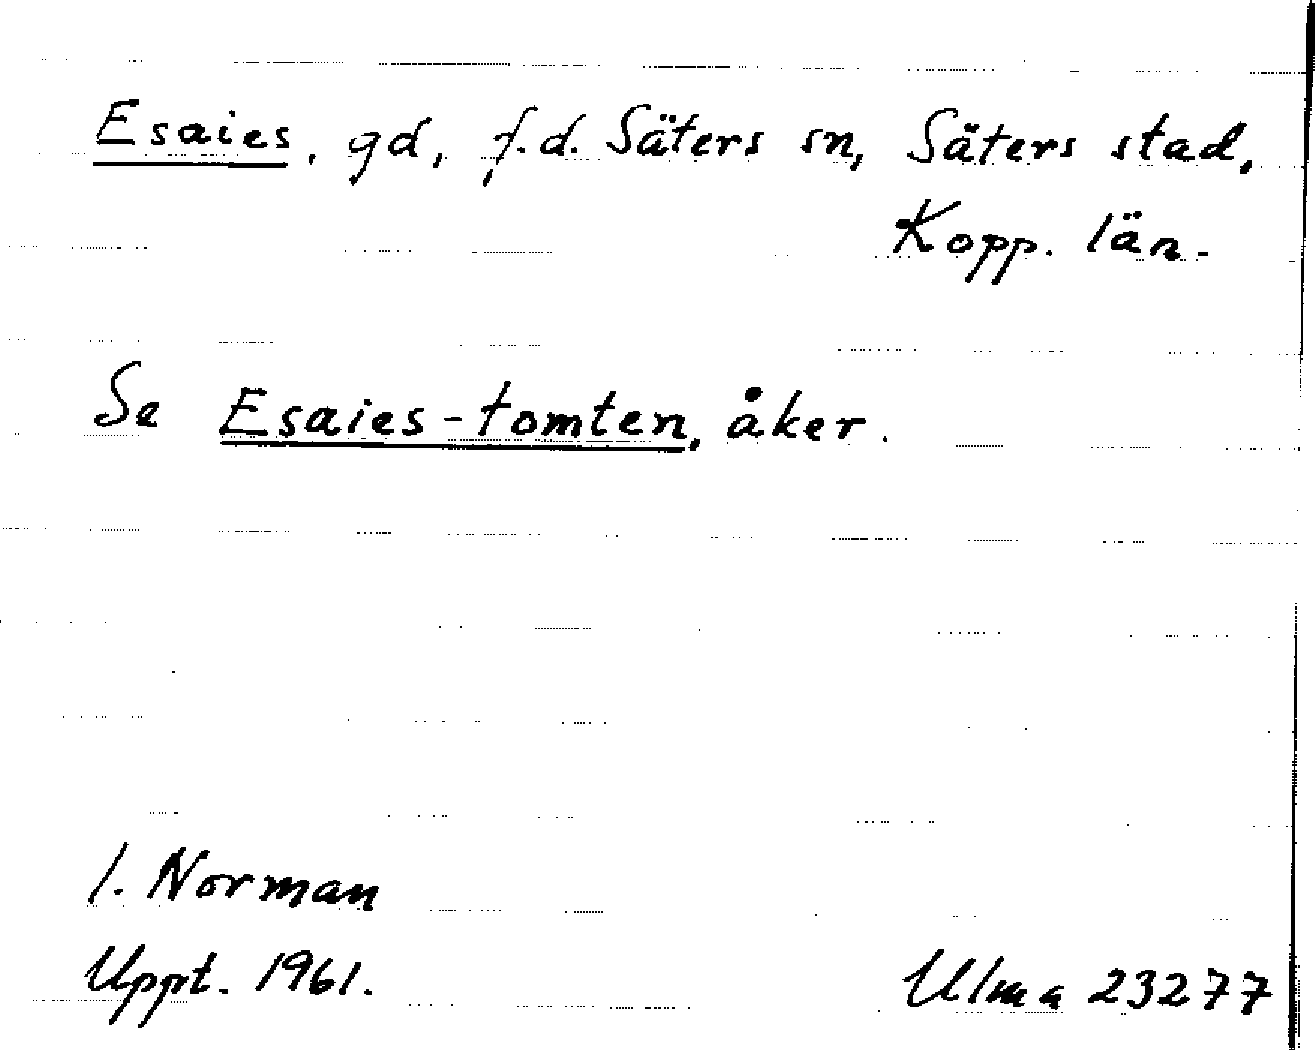 Esaies, gd, f.d. Säters sn, Säters stad,
Kopp. län.
Se Esaies-tomten, åker.
I. Norman
Uppt. 1961.
Ulma 23277